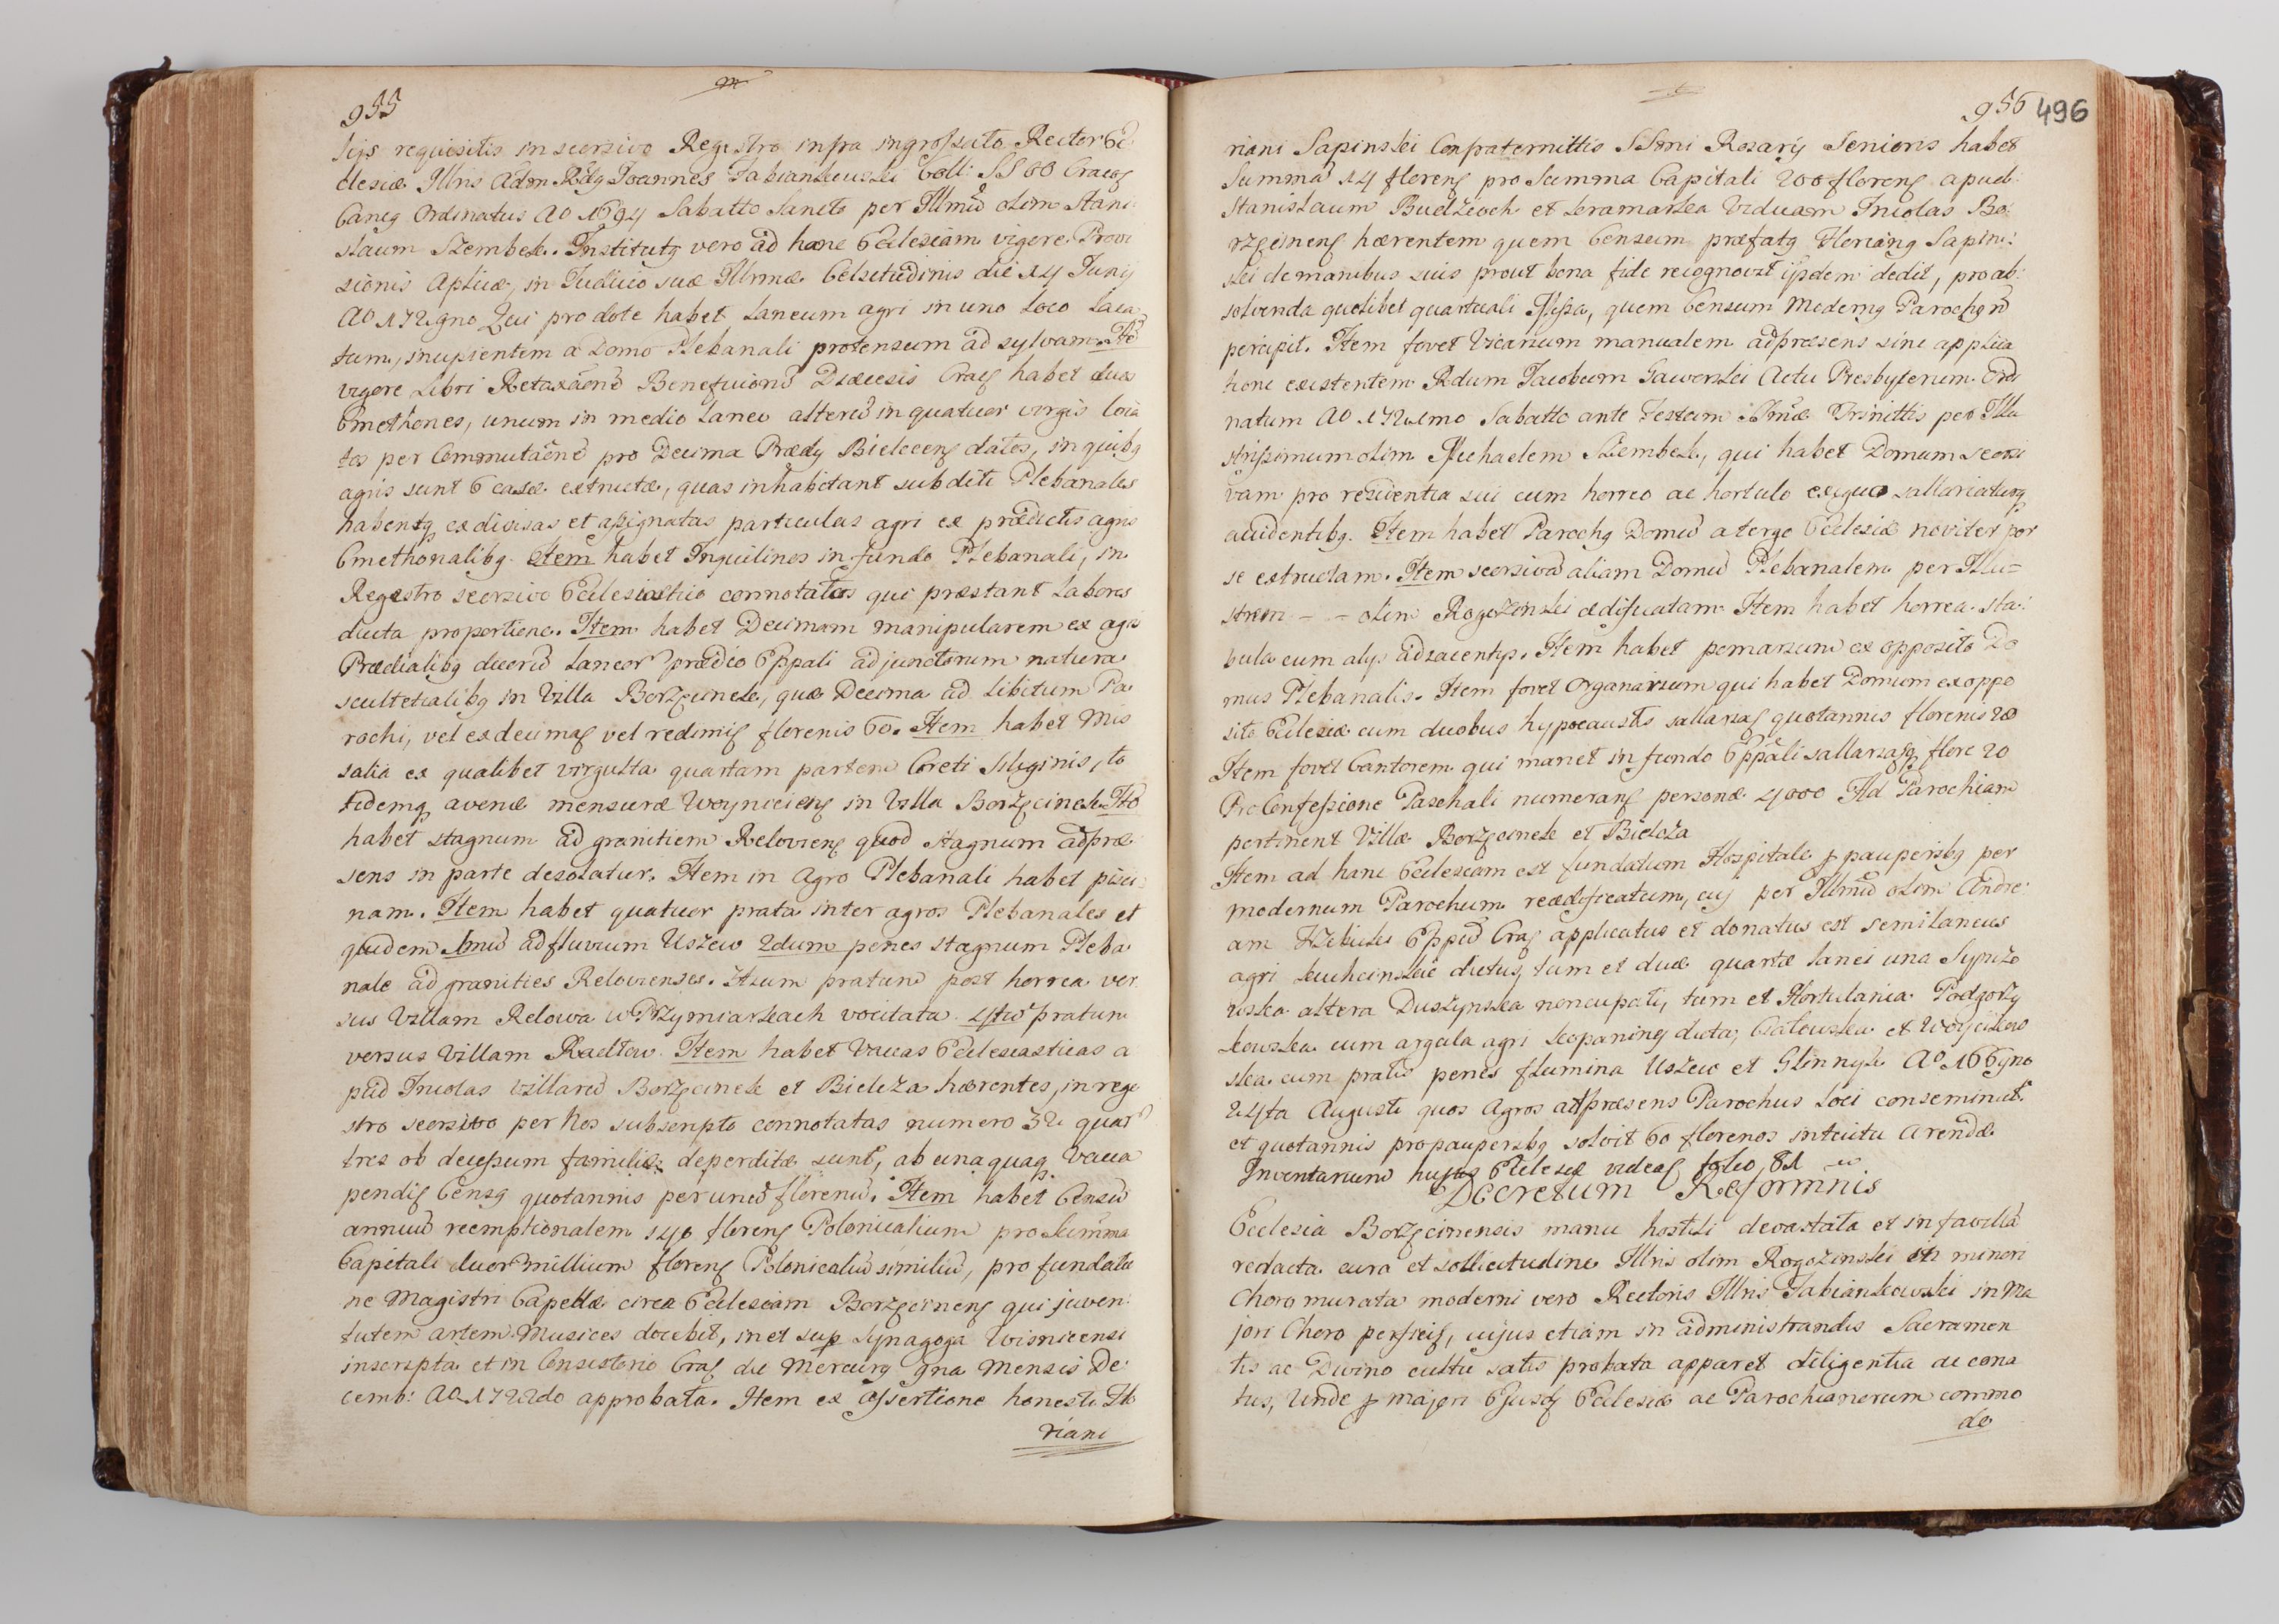 955
sijs requisitis in scorsivo Regestro infra ingrossato. Rector Ec
clesiæ Illris Adm Rdg Joannes Fabiankowski Coll: SS OO Cracog
Cancg Ordinatus Ao 1694 Sabatto Sancto per Illmũ olim Stani
slaum Szembek. Institutg vero ad hanc Ecclesiam vigore Provi
sionis Aplicæ, in Judicio suæ Illrmæ Celsitudinis die 14 Junij
Ao 172gno Qui pro dote habet Laneum agri in uno Loco Loca
tum, incipientem a Domo Plebanali protensum ad sylvam. Itẽ
vigore Libri Retaxãonũ Beneficiorũ Diæcesis Cracs habet duos
Cmethones, unum in medio Laneo alterũ in quatuor virgis loca
tos per Commutãonẽ pro Decima Prædij Bielecens datos, in quibg
agris sunt 6 casæ extructæ, quas inhabitant subditi Plebanales
habentq ex divisas et assignatas particulas agri ex prædictis agris
Cmethonalibg. Item habet Inquilinos in fundo Plebanali, in
Regestro scorsivo Ecclesiastico connotatos qui præstant Labores
ducta proportione. Item habet Decimam manipularem ex agris
Prædialibg duorũ Laneor prædio Eppali adjunctorum natura
scultetialibg in Villa Borzęcinek, quæ Decima ad Libitum Pa
rochi, vel exdecimas vel redimis florenis 60. Item habet Mis
salia ex qualibet virgulta quartam partem Coreti Siliginis, to
tidemq avenæ mensuræ Woyniciens in Villa Borzęcinek. Itẽ
habet stagnum ad granitiem Reloviens quod stagnum ad præ
sens in parte desolatur. Item in Agro Plebanali habet pisci
nam. Item habet quatuor prata inter agros Plebanales et
quidem 1mũ ad fluvium Uszew 2dum penes stagnum Pleba
nale ad granities Relovienses. 3tium pratum post horrea ver
sus Villam Relowa w Przymiarkach vocitata. 4tũ pratum
versus Villam Radłow. Item habet Vaccas Ecclesiasticas a
pud Incolas Villarũ Borzęcinek et Bielcza hærentes, in rege
stro scorsivo per Nos subscripto connotatas numero 32 quar
tres ob decessum familiæ deperditæ sunt, ab unaquaq Vacca
pendis Censg quotannis per unũ florenũ. Item habet Censũ
annuũ reemptionalem 140 florens Polonicalium pro Summa
Capitali duor millium florens Polonicaliũ similiũ, pro fundatio
ne Magistri Capellæ circa Ecclesiam Borzęcinens qui juven:
tutem artem Musices docebit, in et sup Synagoga Wisnicensi
inscripta et in Consistorio Cras die Mercurij gna Mensis De:
cemb: Ao 1722do approbata. Item ex assertione honesti Flo
riani
956 496
riani Sapinski Confraternittis SSmi Rosarij Senioris habet
Summã 14 florens pro Summa Capitali 200 florens apud
Stanislaum Budzioch et Kramarka Viduam Incolas Bo:
rzęcinens hærentem quem Censum præfatg Floriang Sapin:
ski de manibus suis prout bona fide recognovit ijsdem dedit, pro ab:
solvenda quolibet quartuali Missa, quem Censum Moderng Parochg nõ
percipit. Item fovet Vicarium manualem ad præsens sine applica
tione existentem Rdum Jacobum Gaworski Actu Presbyterum. Ordi
natum Ao 172imo Sabatto ante Festum SSmæ Trinittis per Illu
strissimum olim Michaelem Szembek, qui habet Domum scorsi
vam pro residentia sui cum horreo ac hortulo exiguo sallariaturq
accidentibg. Item habet Parochg Domũ a tergo Ecclesiæ noviter per
se extructam. Item scorsivã aliam Domũ Plebanalem per Illu=
strem - - olim Rogozinski ædificatam. Item habet horrea sta:
bula cum alijs adjacentijs. Item habet pomarium ex opposito Do
mus Plebanalis. Item fovet Organarium qui habet Domum ex oppo
sito Ecclesiæ cum duobus hypocaustis sallarias quotannis florenis 20
Item fovet Cantorem qui manet in fundo Eppali sallariasq flore 20
Pro Confessione Paschali numerans personæ 4000 Ad Parochiam
pertinent Villæ Borzęcinek et Bielcza
Item ad hanc Ecclesiam est fundatum Hospitale p pauperibg per
modernum Parochum reædificatum, cuj per Illmũ olim Andre:
am Trzebicki Eppũ Cras applicatus et donatus est semilaneus
agri Kuchcinskie dictus, tum et duæ quartæ lanei una
altera Duszynska noncupati, tum et Hortulania Podgorzy
kowska cum areola agri scopaning dicta, Gatowska et Woycikow
ska cum pratis penes flumina Uszew et Glinnyk Ao 166gno
24ta Augusti quos Agros ad præsens Parochus loci conseminat
et quotannis pro pauperibg solvit 60 florenos intuitu Arendæ
Inventarium hujus Ecclesiæ videas folio, 81
Decretum Reformnis
Ecclesia Borzęcinensis manu hostili devastata et in favillã
redacta cura et sollicitudine Illris olim Rogozinski in minori
Choro murata moderni vero Rectoris Illris Fabiankowski in Ma
jori Choro perficis, cujus etiam in administrandis Sacramen
tis ac Divino cultu satis probata apparet diligentia ac cona
tus, Unde p majori Ejusd Ecclesiæ ac Parochianorum commo
do